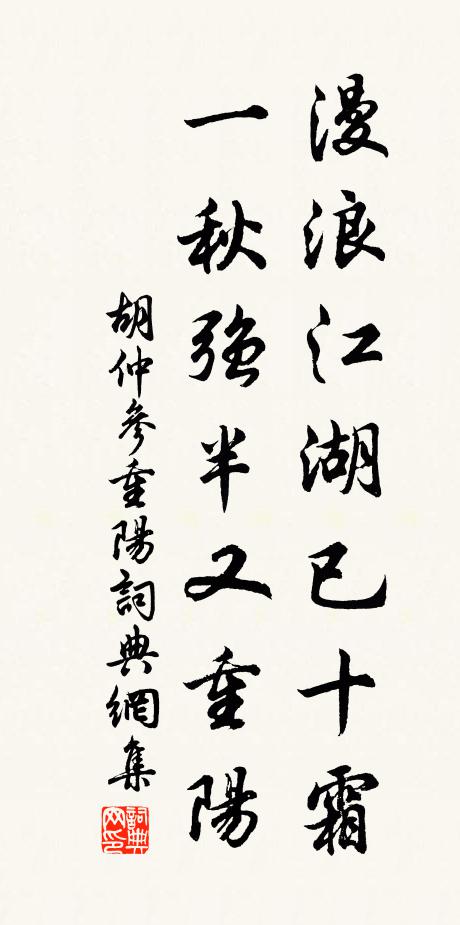 漫浪江湖已十霜
一秋強半又重陽
胡仲參重陽詞典網集
詞典网印